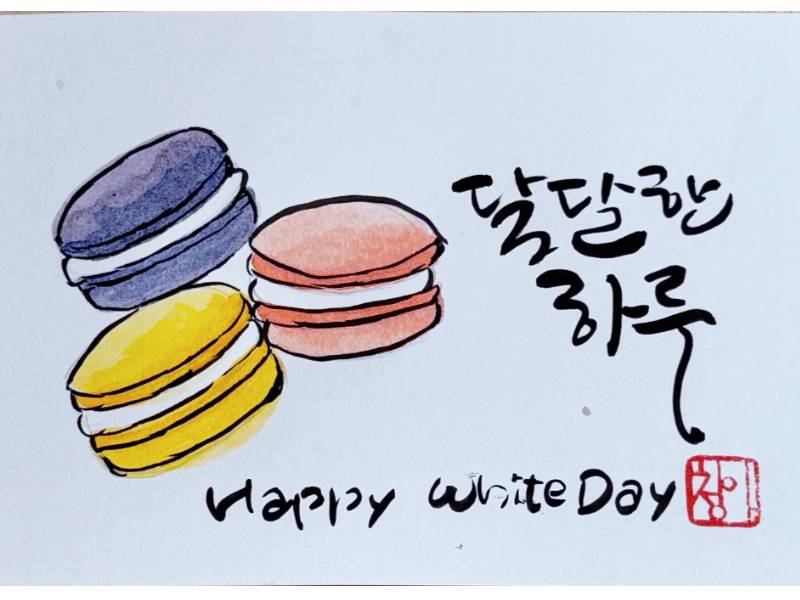 달달한
하루
Happy White Day